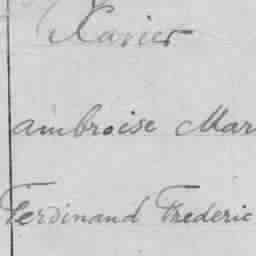 Xavier
ambroise Mar
Ferdinand Frederic